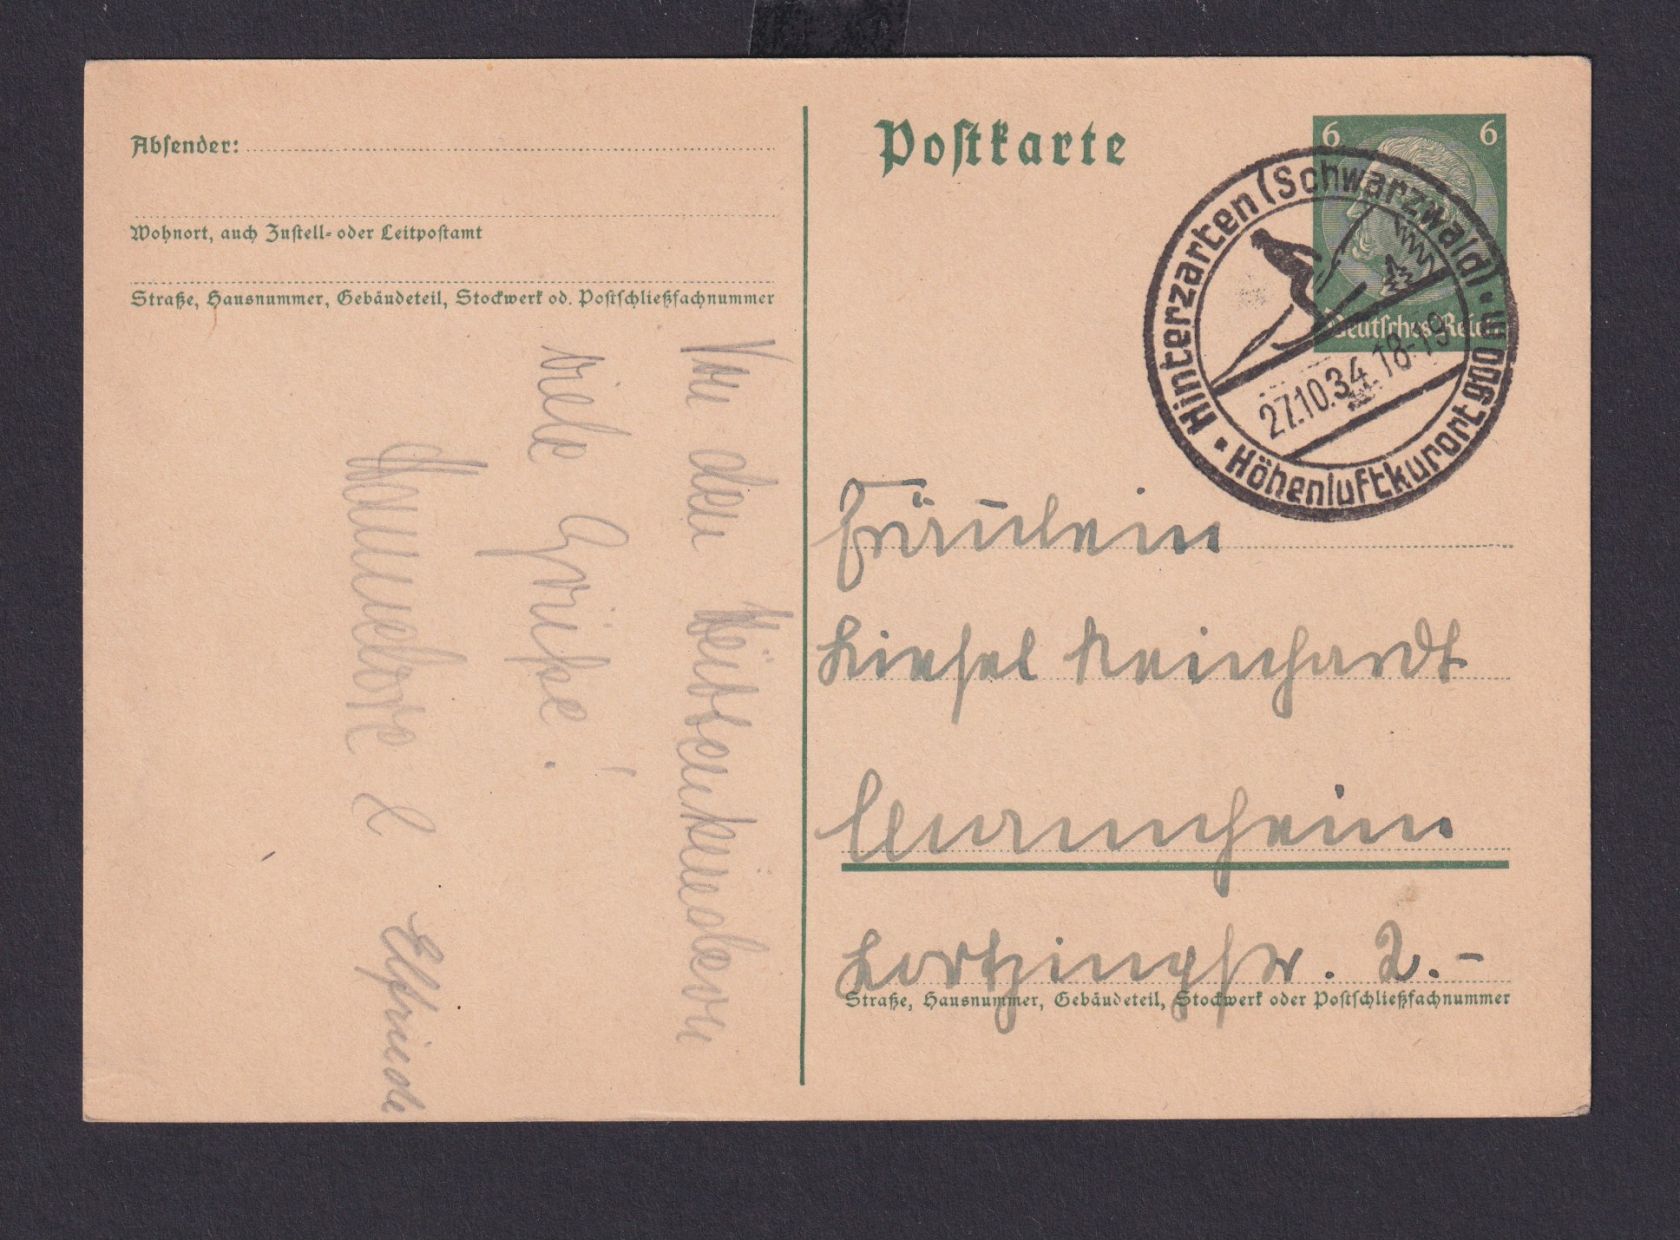 Absender:
Wohnort, auch Zustell- oder Leitpostamt
Straße, Hausnummer, Gebäudeteil, Stockwerk od. Postschließfachnummer
Von den
viele Grüße!
Hannelore L
Elfriede
Postkarte
6 6
Deutsches Reich
Hinterzarten (Schwarzwald) · 900 m
Höhenluftkurort
27.10.34.18-19
Fräulein
Liesel Reinhardt
Mannheim
Lortzingstr. 2.-
Straße, Hausnummer, Gebäudeteil, Stockwerk oder Postschließfachnummer